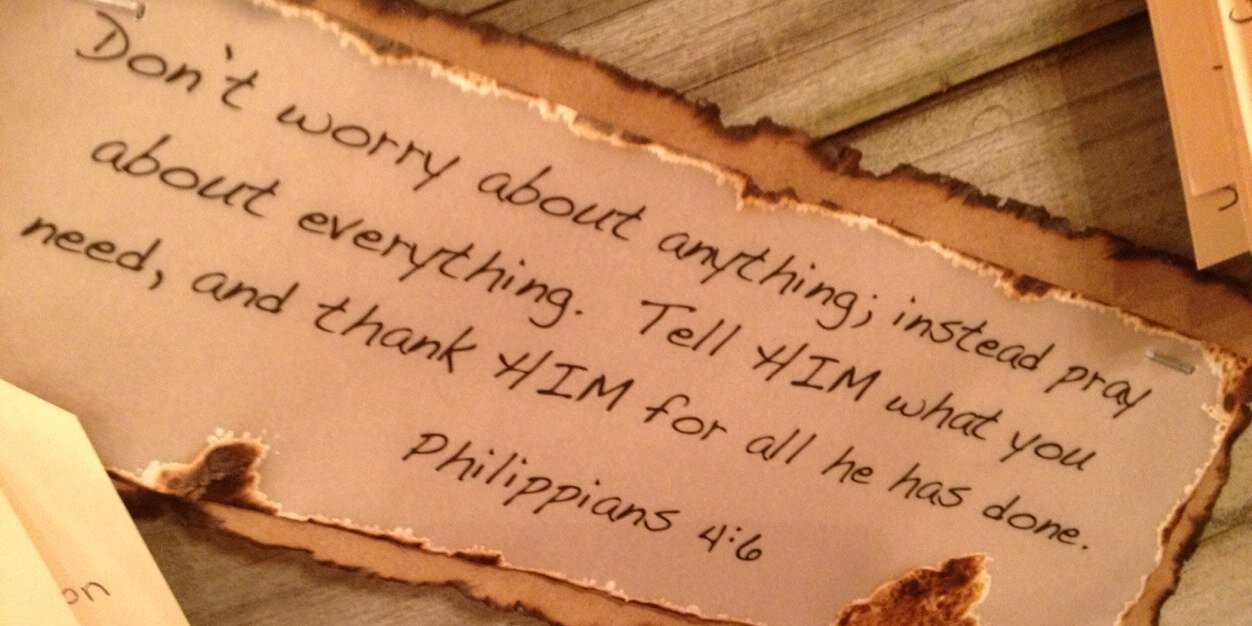 Don't worry about anything; instead pray
about everything. Tell HIM what you
need, and thank HIM for all he has done.
Philippians 4:6
on